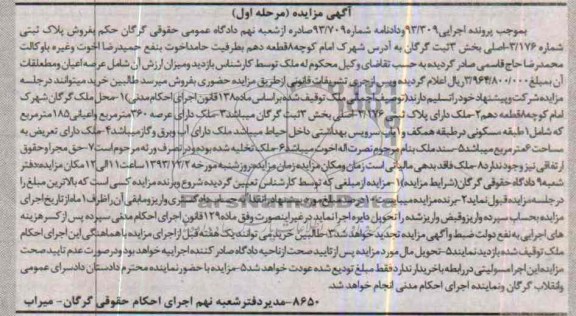 آگهی مزایده (مرحله اول)
بموجب پرونده اجرایی ۹۳/۳۰۹ ودادنامه شماره ۹۳/۷۰۹ صادره ازشعبه نهم دادگاه عمومی حقوقی گرگان حکم بفروش پلاک ثبتی
شماره ۳/۱۷۶-اصلی بخش ۳ثبت گرگان به آدرس شهرک امام کوچه۸قطعه دهم بطرفیت حامداخوت بنفع حمیدرضا اخوت وغیره باوکالت
محمدرضا حاج قاسمی صادر گردیده به حسب تقاضای وکیل محکوم له ملک توسط کارشناس بازدید ومیزان ارزش آن شامل عرصه اعیان ومطعلقات
آن بمبلغ ۳/۹۶۴/۸۰۰/۰۰۰ریال اعلام گردیده وپس ازجری تشریفات قانونی ازطریق مزایده حضوری بفروش میرسد طالبین خرید میتوانند درجلسه
مزایده شرکت وپیشنهاد خود را تسلیم دارند(توصیف اجمالی ملک توقیف شده براساس ماده۱۳۸قانون اجرای احکام مدنی)۱-محل ملک گرگان شهرک
امام کوچه۸قطعه دهم۲-ملک دارای پلاک ثبتی ۳/۱۷۶ اصلی بخش ۳ثبت گرگان میباشد۳-ملک دارای عرصه ۳۶۰مترمربع واعیانی۱۸۵مترمربع
که شامل۱طبقه مسکونی درطبقه همکف و۱باب سرویس بهداشتی داخل حیاط میباشد ملک دارای آب وبرق وگازمیباشد۴-ملک دارای تعریض به
مساحت ۶مترمربع میباشد۵-سند ملک بنام مرحوم نصرت اله اخوت میباشد۶-ملک تخلیه شده بوده ودرتصرف ورثه مرحوم است۷-حق مجرا وحقوق
ارتفاقی نیز وجود ندارد۸-ملک فاقد بدهی مالیاتی است زمان ومکان مزایده زمان مزایده:روز شنبه مورخه ۱۳۹۳/۱۲/۲ ساعت۱۱الی۱۲مکان مزایده:دفتر
شعبه۹ دادگاه حقوقی گرگان(شرایط مزایده)۱-مزایده ازمبلغی که توسط کارشناس تعیین گردیده شروع وبرنده مزایده کسی است که بالاترین مبلغ را
درجلسه مزایده قبول نماید۲-برنده مزایده میبایست مبلغ مورد پیشنهاد دادگستری واریز ومابقی آن راظرف۱ماه ازتاریخ اجرای
مزایده بحساب سپرده واریز وفیش واریزشده را تحویل دایره اجرا نماید درغیراینصورت وفق ماده۱۲۹قانون اجرای احکام مدنی سپرده پس از کسرهزینه
های اجرایی به نفع دولت ضبط وآگهی مزایده تجدید خواهدشد۳-طالبین خرید می توانند یک هفته قبل ازاجرای مزایده با هماهنگی این اجرای احکام
ملک توقیف شده بازدید نمایند۵-تحویل مال مورد مزایده پس از تایید صحت ازناحیه دادگاه صادر کننده اجراییه خواهد بود ودر صورت عدم تایید صحت
مزایده این اجرا مسولیتی دررابطه با خریدار ندارد فقط مبلغ تودیع شده عودت خواهد شد۵-مزایده با حضور نماینده محترم دادستان دادسرای عمومی
وانقلاب گرگان ونماینده اجرای احکام مدنی انجام خواهد شد.
۸۶۵۰-مدیردفترشعبه نهم اجرای احکام حقوقی گرگان- میراب